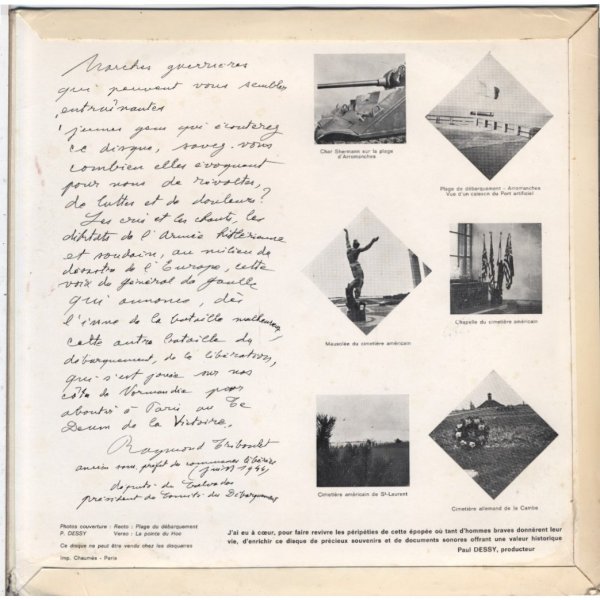 Marches guerrières
qui peuvent vous sembler
entraînantes
jeunes gens qui écouterez
ce disque, savez-vous
combien elles évoquent
pour nous de révoltes,
de luttes et de douleurs?
Les cris et les chants, les
diktats de l'Armée hitlérienne
et soudain, au milieu du
désastre de l'Europe, cette
voix du général de Gaulle
qui annonce, dès
l'issue de la bataille malheureuse,
cette autre bataille du
débarquement, de la libération,
qui s'est jouée sur nos
côtes de Normandie pour
aboutir à Paris au Te
Deum de la Victoire.
Raymond Triboulet
ancien sous préfet des communes libérées
(juin 1944)
député du Calvados
président du Comité du Débarquement
Char Shermann sur la plage
d'Arromanches
Plage de débarquement - Arromanches
Vue d'un caisson de Port artificiel
Mausolée du cimetière américain
Chapelle du cimetière américain
Cimetière américain de St-Laurent
Cimetière allemand de la Cambe
Photos couverture : Recto : Plage du débarquement
P. DESSY Verso : La pointe du Hoc
Ce disque ne peut être vendu chez les disquaires
Imp. Chaumès - Paris
J'ai eu à cœur, pour faire revivre les péripéties de cette épopée où tant d'hommes braves donnèrent leur
vie, d'enrichir ce disque de précieux souvenirs et de documents sonores offrant une valeur historique
Paul DESSY, producteur